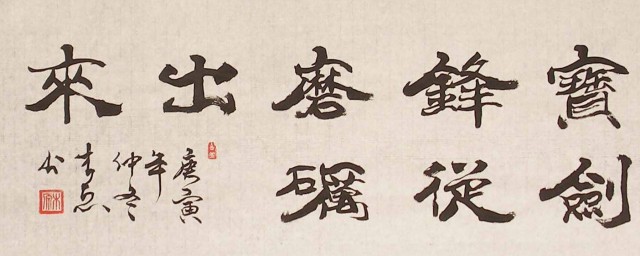 寶劍
鋒從
磨礪
出
來
庚寅
年
仲冬
书